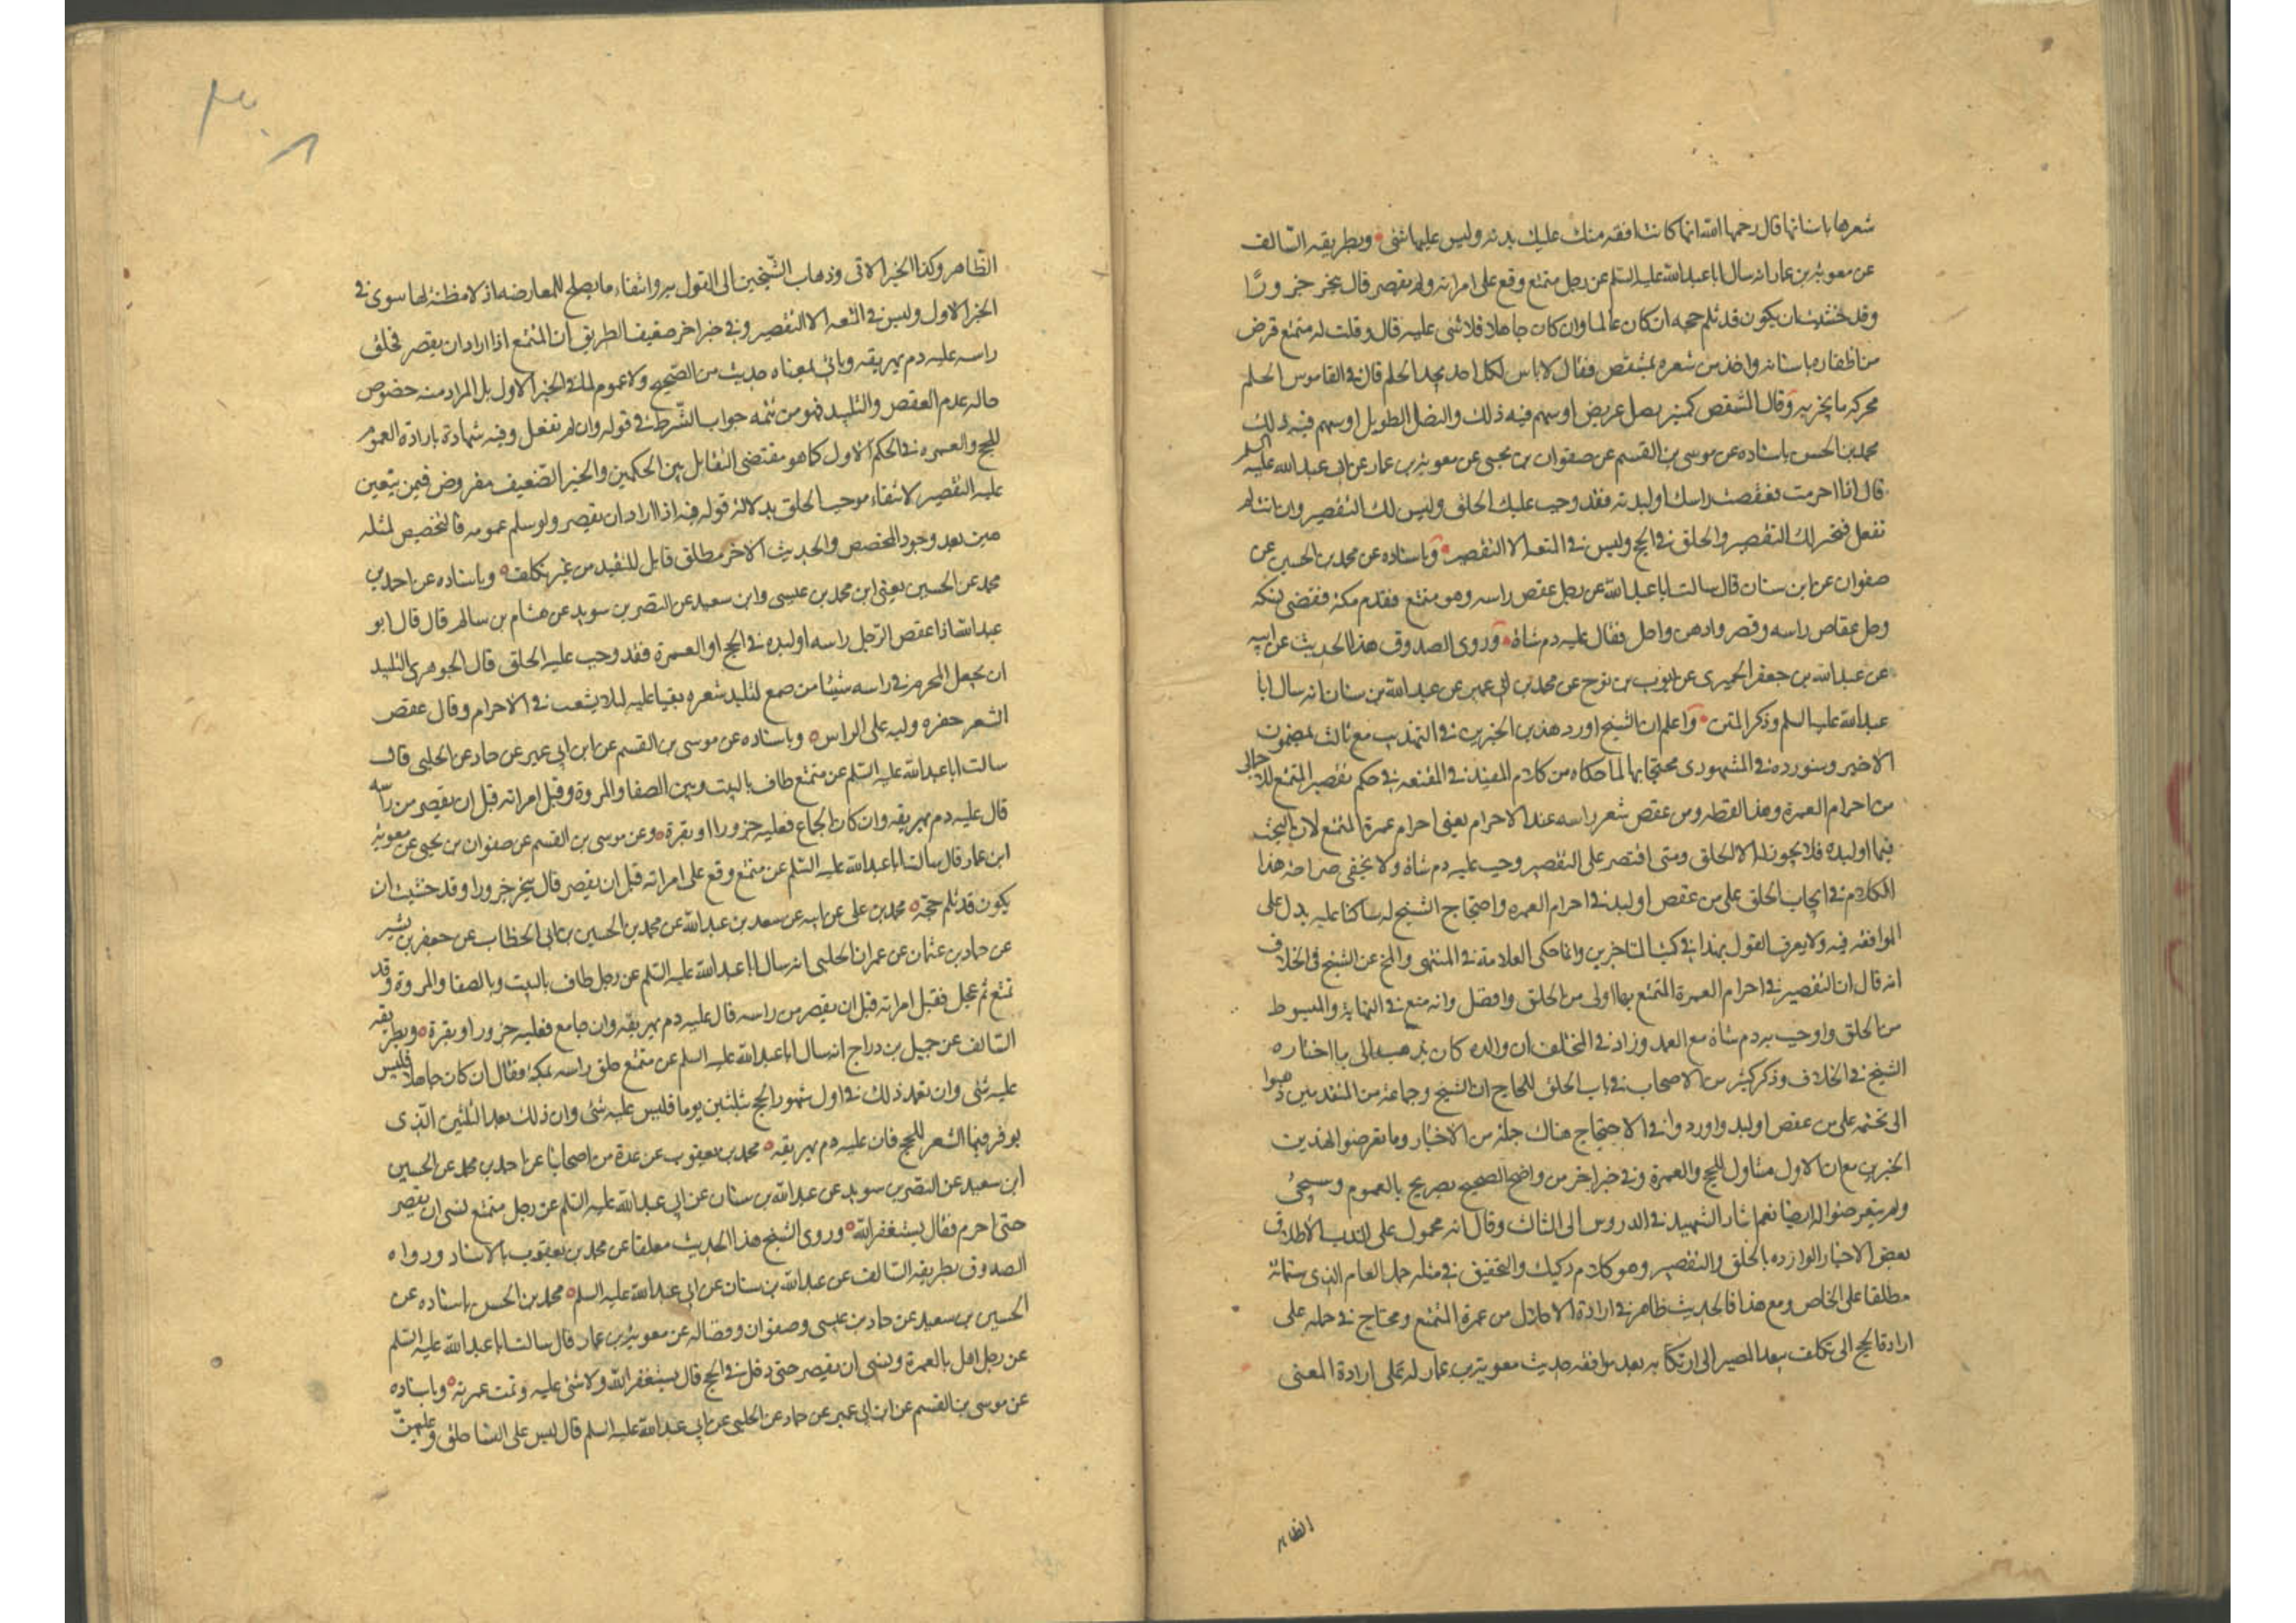 شعرها باسنانها قال رحمها الله انها كانت افقه منك عليك بدنه وليس عليها شئ وبطريقه السالف
عن معوية بن عمار انه سال ابا عبدالله عليه السلم عن رجل متمتع وقع على امراته ولم يقصر قال ينحر جزورا
وقد خشيت ان يكون قد ثلم حجه ان كان عالما وان كان جاهلا فلا شئ عليه قال وقلت له متمتع قرض
من اظفاره باسنانه واخذ من شعره بمشقص فقال لا باس لكل احد يجد الجلم قال في القاموس الجلم
محركه ما يجز به وقال المشقص كمنبر نصل عريض او سهم فيه ذلك والنصل الطويل او سهم فيه ذلك
محمد بن الحسن باسناده عن موسى بن القسم عن صفوان بن يحيى عن معوية بن عمار عن ابي عبدالله عليه السلم
قال اذا احرمت فعقصت راسك او لبدته فقد وجب عليك الحلق وليس لك التقصير وان انت لم
تفعل فتخير لك التقصير والحلق في الحج وليس في المتعه الا التقصير وباسناده عن محمد بن الحسين عن
صفوان عن ابن سنان قال سالت ابا عبدالله عن رجل عقص راسه وهو متمتع فقدم مكة فقضى نسكه
وحل عقاص راسه وقصر وادهن واحل فقال عليه دم شاة وروى الصدوق هذا الحديث عن ابيه
عن عبدالله بن جعفر الحميرى عن ايوب بن نوح عن محمد بن ابي عمير عن عبدالله بن سنان انه سال ابا
عبدالله عليه السلم وذكر المتن واعلم ان الشيخ اورد هذين الخبرين في التهذيب مع ثالث بمضمون
الاخير وسنورده في المشهورى محتجا بها لما حكاه من كلام المفيد في المقنعه في حكم تقصير المتمتع للاحلال
من احرام العمرة وهذا لفظه ومن عقص شعر راسه عند الاحرام يعنى احرام عمرة المتمتع لان البحث
فيها او لبده فلا يجوز له الا الحلق ومتى اقتصر على التقصير وجب عليه دم شاة ولا يخفى صراحة هذا
الكلام في ايجاب الحلق على من عقص او لبد في احرام العمره واحتجاج الشيخ له ساكتا عليه يدل على
الموافقه فيه ولا يعرف القول بهذا في كتب المتاخرين وانما حكى العلامة في المنتهى و عن الشيخ في الخلاف
انه قال ان التقصير في احرام العمرة المتمتع بها اولى من الحلق وافضل وانه منع في النهاية والمبسوط
من الحلق واوجب به دم شاة مع العمد وزاد في المختلف ان والده كان يذهب الى ما اختاره
الشيخ في الخلاف وذكر كثير من الاصحاب في باب الحلق للحاج ان الشيخ وجماعة من المتقدمين ذهبوا
الى تحتمه على من عقص او لبد واوردوا في الاحتجاج هناك جملة من الاخبار وما تعرضوا لهذين
الخبرين مع ان الاول متناول للحج والعمرة وفي خبر اخر من واضح الصحيح تصريح بالعموم وسيجئ
ولم يتعرضوا له ايضا نعم اشار الشهيد في الدروس الى الثالث وقال انه محمول على الندب لاطلاق
بعض الاخبار الواردة بالحلق والتقصير وهو كلام ركيك والتحقيق في مثله حمل العام الذى ستماة
مطلقا على الخاص ومع هذا فالحديث ظاهر في ارادة الاحلال من عمرة المتمتع ومحتاج في حمله على
ارادة الحج الى تكلف بعد المصير الى ارتكابه بعد موافقه حديث معوية بن عمار له على ارادة المعنى
الظاهر
الظاهر وكذا الخبر الاتى وذهاب الشيخين الى القول به وانتفاء ما يصلح للمعارضه اذ لا مظنة لها سوى في
الخبر الاول وليس في المتعه الا التقصير وفي خبر اخر ضعيف الطريق ان المتمتع اذا اراد ان يقصر فحلق
راسه عليه دم يهريقه وياتى بمعناه حديث من الصحيح ولا عموم لما في الخبر الاول بل المراد منه خصوص
حاله عدم العقص والتلبيد فهو من تتمه جواب الشرط في قوله وان لم تفعل وفيه شهادة بارادة العموم
للحج والعمره في الحكم الاول كما هو مقتضى التقابل بين الحكمين والخبر الضعيف مفروض فيمن يتعين
عليه التقصير لانتفاء موجب الحلق بدلالة قوله فيه اذا اراد ان يقصر ولو سلم عمومه فالتخصيص لمثله
هين بعد وجود المخصص والحديث الاخر مطلق قابل للتقييد من غير تكلف وباسناده عن احمد بن
محمد عن الحسين يعنى ابن محمد بن عيسى وابن سعيد عن النضر بن سويد عن هشام بن سالم قال قال ابو
عبدالله اذا عقص الرجل راسه او لبده في الحج او العمرة فقد وجب عليه الحلق قال الجوهرى التلبيد
ان يجعل المحرم في راسه شيئا من صمغ لتلبد شعره بقيا عليه لئلا يشعث في الاحرام وقال عقص
الشعر ضفره وليه على الراس وباسناده عن موسى بن القسم عن ابن ابي عمير عن حماد عن الحلبى قال
سالت ابا عبدالله عليه السلم عن متمتع طاف بالبيت وبين الصفا والمروة وقبل امراته قبل ان يقصر من راسه
قال عليه دم يهريقه وان كان الجماع فعليه جزورا او بقرة وعن موسى بن القسم عن صفوان بن يحيى عن معوية
ابن عمار قال سالت ابا عبدالله عليه السلم عن متمتع وقع على امراته قبل ان يقصر قال ينحر جزورا وقد خشيت ان
يكون قد ثلم حجه محمد بن على عن ابيه عن سعد بن عبدالله عن محمد بن الحسين بن ابي الخطاب عن جعفر بن بشير
عن حماد بن عثمان عن عمران الحلبى انه سال ابا عبدالله عليه السلم عن رجل طاف بالبيت وبالصفا والمروة وقد
تمتع ثم عجل فقبل امراته قبل ان يقصر من راسه قال عليه دم يهريقه وان جامع فعليه جزور او بقرة وبطريقه
السالف عن جميل بن دراج انه سال ابا عبدالله عليه السلم عن متمتع حلق راسه بمكة فقال ان كان جاهلا فليس
عليه شئ وان تعمد ذلك في اول شهور الحج بثلثين يوما فليس عليه شئ وان ذلك بعد الثلثين الذى
يوفر فيها الشعر للحج فان عليه دم يهريقه محمد بن يعقوب عن عدة من اصحابنا عن احمد بن محمد عن الحسين
ابن سعيد عن النضر بن سويد عن عبدالله بن سنان عن ابي عبدالله عليه السلم عن رجل متمتع نسى ان يقصر
حتى احرم فقال يستغفر الله وروى الشيخ هذا الحديث معلقا عن محمد بن يعقوب بالاسناد ورواه
الصدوق بطريقه السالف عن عبدالله بن سنان عن ابي عبدالله عليه السلم محمد بن الحسن باسناده عن
الحسين بن سعيد عن حماد بن عيسى وصفوان وفضاله عن معوية بن عمار قال سالت ابا عبدالله عليه السلم
عن رجل اهل بالعمرة ونسى ان يقصر حتى دخل في الحج قال يستغفر الله ولا شئ عليه وتمت عمرته وباسناده
عن موسى بن القسم عن ابن ابي عمير عن حماد عن الحلبى عن ابي عبدالله عليه السلم قال ليس على النسا حلق وعليهن